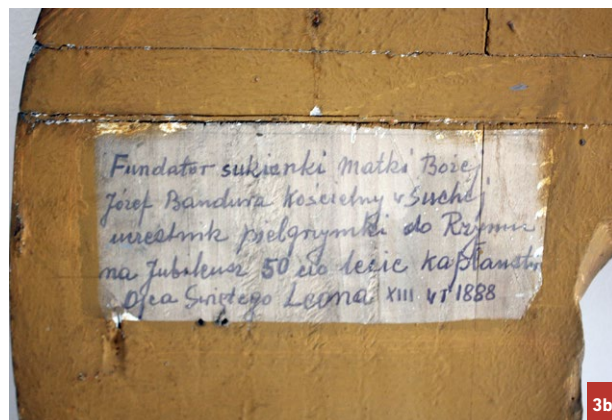 Fundator sukienki Matki Bożej
Józef Bandura Kościelny w Suchej
uczestnik pielgrzymki do Rzymu
na Jubileusz 50 cio lecie kapłaństw
Ojca Świętego Leona XIII w 1888
3b